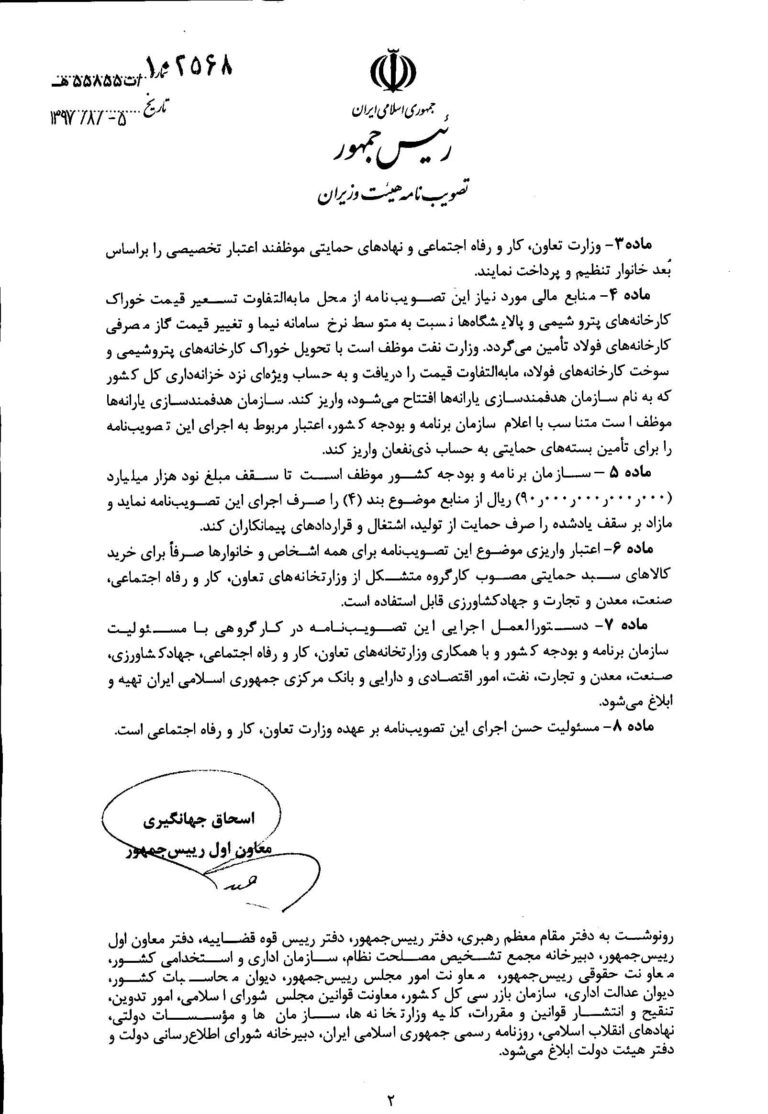 شماره ۱۰۲۵۶۸
/ت۵۵۸۵۵هـ
تاریخ ۱۳۹۷/۸/۰۵
جمهوری اسلامی ایران
رئیس جمهور
تصویب نامه هیئت وزیران
ماده۳- وزارت تعاون، کار و رفاه اجتماعی و نهادهای حمایتی موظفند اعتبار تخصیصی را براساس
بُعد خانوار تنظیم و پرداخت نمایند.
ماده ۴- منابع مالی مورد نیاز این تصویب‌نامه از محل مابه‌التفاوت تسعیر قیمت خوراک
کارخانه‌های پتروشیمی و پالایشگاه‌ها نسبت به متوسط نرخ سامانه نیما و تغییر قیمت گاز مصرفی
کارخانه‌های فولاد تأمین می‌گردد. وزارت نفت موظف است با تحویل خوراک کارخانه‌های پتروشیمی و
سوخت کارخانه‌های فولاد، مابه‌التفاوت قیمت را دریافت و به حساب ویژه‌ای نزد خزانه‌داری کل کشور
که به نام سازمان هدفمندسازی یارانه‌ها افتتاح می‌شود، واریز کند. سازمان هدفمندسازی یارانه‌ها
موظف است متناسب با اعلام سازمان برنامه و بودجه کشور، اعتبار مربوط به اجرای این تصویب‌نامه
را برای تأمین بسته‌های حمایتی به حساب ذی‌نفعان واریز کند.
ماده ۵ – سازمان برنامه و بودجه کشور موظف است تا سقف مبلغ نود هزار میلیارد
(۹۰٫۰۰۰٫۰۰۰٫۰۰۰٫۰۰۰) ریال از منابع موضوع بند (۴) را صرف اجرای این تصویب‌نامه نماید و
مازاد بر سقف یادشده را صرف حمایت از تولید، اشتغال و قراردادهای پیمانکاران کند.
ماده ۶- اعتبار واریزی موضوع این تصویب‌نامه برای همه اشخاص و خانوارها صرفاً برای خرید
کالاهای سبد حمایتی مصوب کارگروه متشکل از وزارتخانه‌های تعاون، کار و رفاه اجتماعی،
صنعت، معدن و تجارت و جهادکشاورزی قابل استفاده است.
ماده ۷- دستورالعمل اجرایی این تصویب‌نامه در کارگروهی با مسئولیت
سازمان برنامه و بودجه کشور و با همکاری وزارتخانه‌های تعاون، کار و رفاه اجتماعی، جهادکشاورزی،
صنعت، معدن و تجارت، نفت، امور اقتصادی و دارایی و بانک مرکزی جمهوری اسلامی ایران تهیه و
ابلاغ می‌شود.
ماده ۸- مسئولیت حسن اجرای این تصویب‌نامه بر عهده وزارت تعاون، کار و رفاه اجتماعی است.
اسحاق جهانگیری
معاون اول رییس‌جمهور
رونوشت به دفتر مقام معظم رهبری، دفتر رییس‌جمهور، دفتر رییس قوه قضاییه، دفتر معاون اول
رییس‌جمهور، دبیرخانه مجمع تشخیص مصلحت نظام، سازمان اداری و استخدامی کشور،
معاونت حقوقی رییس‌جمهور، معاونت امور مجلس رییس‌جمهور، دیوان محاسبات کشور،
دیوان عدالت اداری، سازمان بازرسی کل کشور، معاونت قوانین مجلس شورای اسلامی، امور تدوین،
تنقیح و انتشار قوانین و مقررات، کلیه وزارتخانه‌ها، سازمان‌ها و مؤسسات دولتی،
نهادهای انقلاب اسلامی، روزنامه رسمی جمهوری اسلامی ایران، دبیرخانه شورای اطلاع‌رسانی دولت و
دفتر هیئت دولت ابلاغ می‌شود.
۲